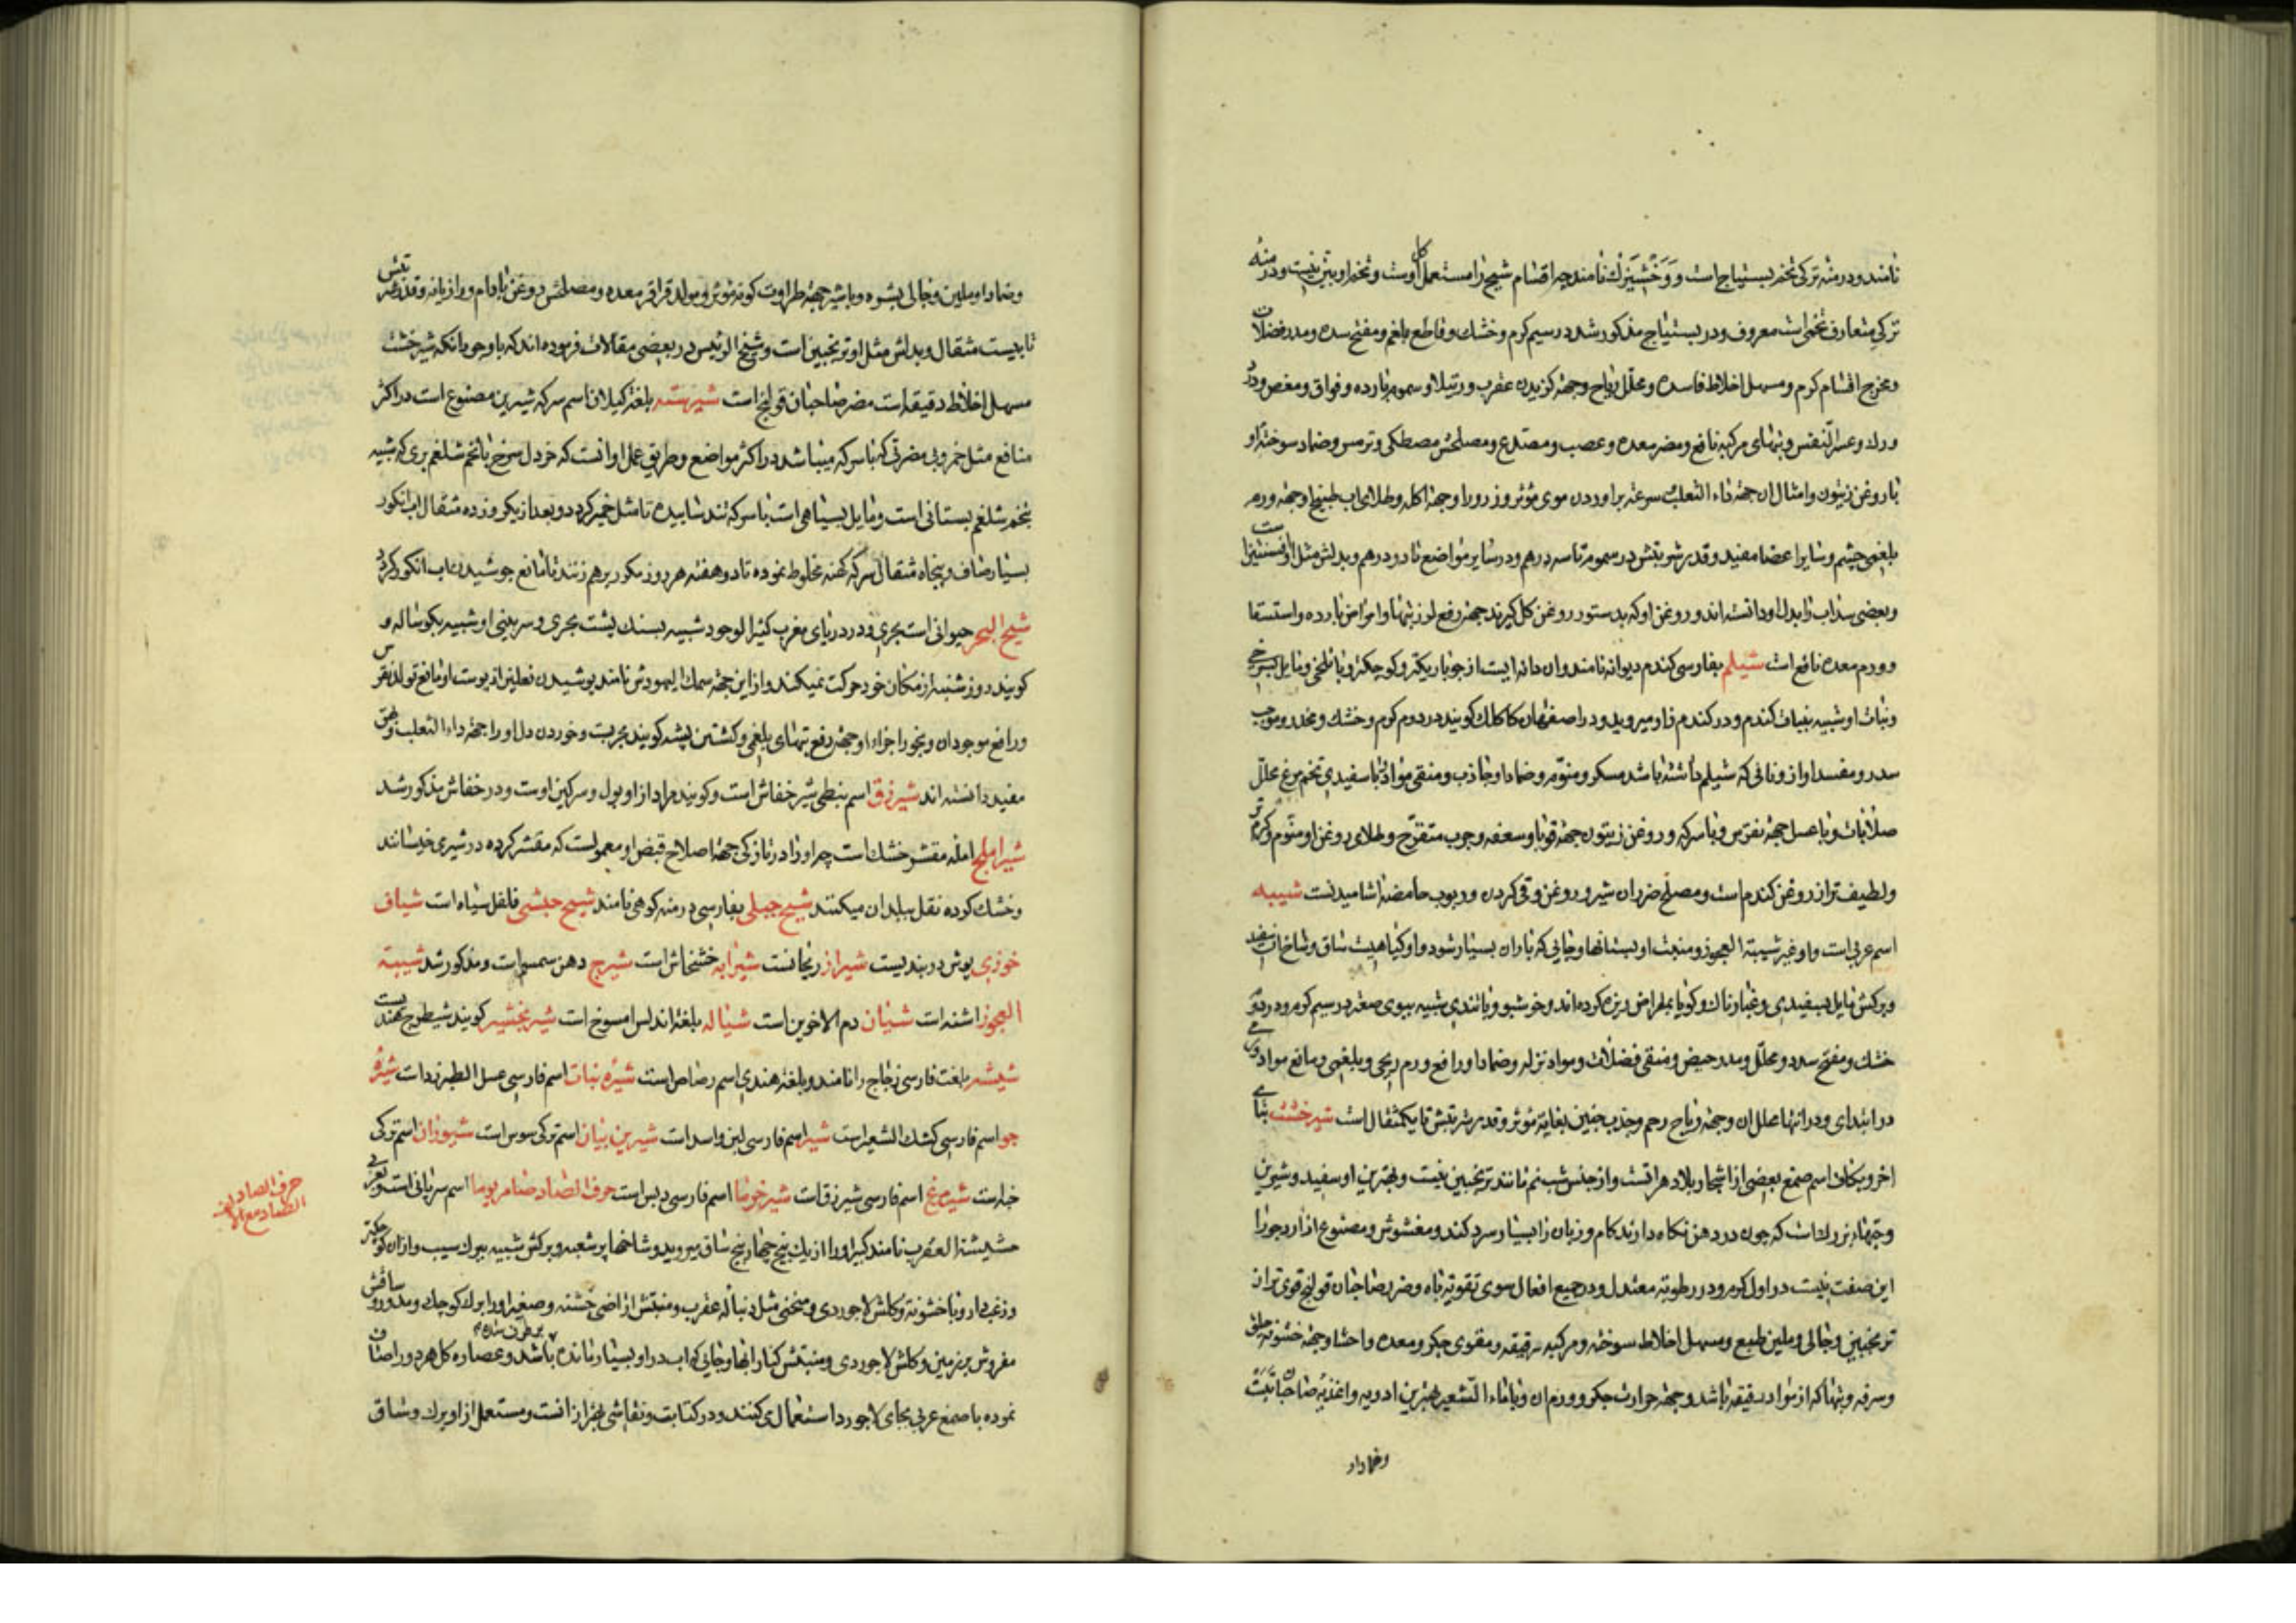 نامند و درمنه ترکی تخم بستیاج است و وخشیزک نامند چه اقسام شیح را مستعمل کل اوست و تخم او بتریست و درمنه
ترکی متعارف تخمی است معروف و در بستیاج مذکور شد در سیم کرم و خشک و قاطع بلغم و مفتح سده و مدر فضلات
و مخرج اقسام کرم و مسهل اخلاط فاسده و محلل ریاح و جهة کزیدن عقرب و رتیلا و سموم بارده و فواق و مغص و درد
ورک و عسر النفس و تبهای مرکبه نافع و مضر معده و عصب و مصدع و مصلحش مصطکی و ترمس و ضماد سوختهٔ او
با روغن زیتون و امثال ان جهة داء الثعلب و سرعة براوردن موی مؤثر و ذرور او جهة اکله و طلای اب طبیخ او جهة ورم
بلغمی چشم و سایر اعضا مفید و قدر شربتش در سموم تا سه درهم و در سایر مواضع تا دو درهم و بدلش مثل او افسنتین است
و بعضی سداب را بدل او دانسته اند و روغن او که بدستور روغن کل کیرند جهة رفع لرز تبها و امراض بارده و استسقا
و ورم معده نافع است شیلم بفارسی کندم دیوانه نامند و ان دانه ایست از جو باریکتر و کوچکتر و با تلخی و مایل بسرخی
و نبات او شبیه بنبات کندم و در کندم زار میروید و در اصفهان کاکلک کویند در دوم کرم و خشک و مخدر و موجب
سدر و مفسد اواز و نانی که شیلم داشته باشد مسکر و منوم و ضماد او جاذب و منقی مواد و با سفیدی تخم مرغ محلل
صلابات و با عسل جهة نقرس و با سرکه و روغن زیتون جهة قوبا و سعفه و جرب متقرح و طلای روغن او منوم و کرم تر
و لطیف تر از روغن کندم است و مصلح ضرر ان شیر و روغن و قی کردن و ربوب حامضه اشامیدنست شیبه
اسم عربی است و او غیر شیبة العجوز و منبت او بستانها و جائی که باران بسیار شود و او کیاهیست ساق و شاخهاش سفید
و برکش مایل بسفیدی و غبارناک و کویا بمقراض ریزه کرده اند و خوشبو و با تندی شبیه ببوی صعتر در سیم کرم و در دویم
خشک و مفتح سدد و محلل و مدر حیض و منقی فضلات و مواد نزله و ضماد او رافع ورم ریحی و بلغمی و مانع مواد ورمی
در ابتدای و در انتها محلل ان و جهة ریاح رحم و جذب جنین بغایة مؤثر و قدر شربتش تا یکمثقال است شیرخشت بتای
اخر و بکاف اسم صمغ بعضی از اشجار بلاد هراتست و از جنس شبنم مانند ترنجبین نیست و بهترین او سفید و شیرین
و تبها بزرک است که چون در دهن نکاه دارند کام و زبان را بسیار سرد کند و مغشوش و مصنوع از ارد جو را
این صفت نیست در اول کرم و در رطوبة معتدل و در جمیع افعال سوی تقویة باه و ضرر صاحبان قولنج قوی تر از
ترنجبین و جالی و ملین طبع و مسهل اخلاط سوخته و مرکبه رقیقه و مقوی جکر و معده و احشا و جهة خشونة حلق
و سرفه و تبها که از مواد رقیقه باشد و جهة حرارت جکر و ورم ان و با ماء الشعیر بهترین ادویه و اغذیه صاحبان تبست
و ضماد او
و ضماد او ملین و جالی بشره و با شیر جهة طراوت کونه مؤثر و مولد قراقر معده و مصلحش روغن بادام و رازیانه و قدر شربتش
تا بیست مثقال و بدلش مثل او ترنجبین است و شیخ الرئیس در بعضی مقالات فرموده اند که با وجود انکه شیرخشت
مسهل اخلاط دقیقه است مضر صاحبان قولنج است شیرسته بلغة کیلان اسم سرکه شیرین مصنوع است در اکثر
منافع مثل خمر و بی مضرتی که با سرکه میباشد در اکثر مواضع و طریق عمل او انست که خردل سرخ با تخم شلغم بری که شبیه
بتخم شلغم بستانی است و مایل بسیاهی است با سرکه تند سائیده تا مثل خمیر کردد و بعد از یکروز ده مثقال اب انکور
بسیار صاف و پنجاه مثقال سرکه کهنه مخلوط نموده تا دو هفته هر روز مکرر برهم زنند تا مانع جوشیدن اب انکور کردد
شیخ البحر حیوانی است بحری و در دریای مغرب کثیر الوجود شبیه بسنک پشت بحری و سر بینی او شبیه بکوساله و
کویند روز شنبه از مکان خود حرکت نمیکند و از این جهة سمک الیهودش نامند پوشیدن نعلین از پوست او مانع تولد نقرس
و رافع موجود ان و بخور اجزاء او جهة رفع تبهای بلغمی و کشتن پشه کویند مجربست و خوردن دل او را جهة داء الثعلب و بهق
مفید دانسته اند شیرزق اسم نبطی شیر خفاش است و کویند مراد از او بول و سرکین اوست و در خفاش مذکور شد
شیراملج امله مقشر خشک است چه او را در تازکی جهة اصلاح قبض او معمولست که مقشر کرده در شیری خیسانند
و خشک کرده نقل ببلدان میکنند شیح جبلی بفارسی درمنه کوهی نامند شیح حبشی فلفل سیاه است شیاف
خوزی بوش دربندیست شیراز ریحانست شیرابه خشخاش است شیرج دهن سمسم است و مذکور شد شیبة
العجوز اشنه است شیان دم الاخوین است شیاله بلغة اندلس امسوخ است شیربخشیر کویند شیطرج هندیست
شیشه بلغت فارسی زجاج را نامند و بلغة هندی اسم رصاص است شیره نبات اسم فارسی عسل الطبرزد است شیرهٔ
جو اسم فارسی کشک الشعیر است شیر اسم فارسی لبن و اسد است شیرین بیان اسم ترکی سوس است شبوزان اسم ترکی
است شیرمرغ اسم فارسی شیرزق است شیرخرما اسم فارسی دبس است حرف الصاد صامریوما اسم سریانی است و بعربی
حشیشة العقرب نامند کبیر او را از یک بیخ چهار پنج ساق میروید و شاخها پر شعبه و برکش شبیه ببرک سیب و از ان کوچکتر
و زغب دار و با خشونة و کلش لاجوردی و منحنی مثل دنباله عقرب و منبتش اراضی خشنه و صغیر او را برک کوچک و مدور و ساقش
مفروش بر زمین و کلش لاجوردی و منبتش کنار ابها و جائی که اب در او بسیار مانده برطرف شده باشد و عصاره کل هر دو را صاف
نموده با صمغ عربی بجای لاجورد استعمال می کنند و در کتابت و نقاشی بهتر از انست و مستعمل از او برک و ساق
حرف الصاد
الصاد مع الالف